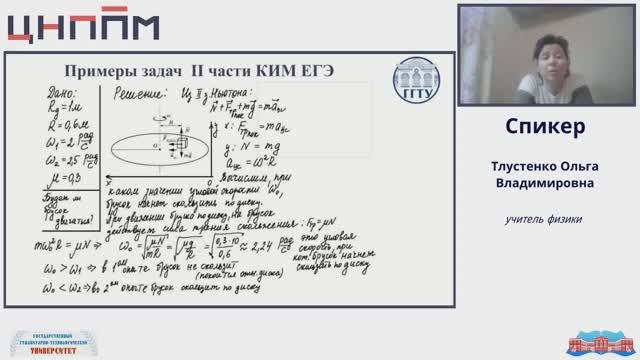 ЦНППМ
Примеры задач II части КИМ ЕГЭ
ГГТУ
Дано:
R₀=1м
R=0,6м
ω₁=2 рад/с
ω₂=2,5 рад/с
μ=0,3
Будет ли брусок двигаться?
Решение: Из II з. Ньютона:
N + Fтр + mg = maцс
x: Fтр = maцс
y: N = mg
aцс = ω²R
Вычислим, при
каком значении угловой скорости ω₀,
брусок начнет скользить по диску.
При движении бруска по диску, на брусок
действует сила трения скольжения: Fтр = μN
mω₀²R = μN ⇒ ω₀ = √(μN/mR) = √(μg/R) = √(0,3·10/0,6) ≈ 2,24 рад/с
это угловая скорость, при кот. брусок начнет скользить по диску
ω₀ > ω₁ ⇒ в 1ом опыте брусок не скользит
(покоится отн. диска)
ω₀ < ω₂ ⇒ во 2ом опыте брусок скользит по диску
Спикер
Тлустенко Ольга
Владимировна
учитель физики
ГОСУДАРСТВЕННЫЙ
ГУМАНИТАРНО-ТЕХНОЛОГИЧЕСКИЙ
УНИВЕРСИТЕТ